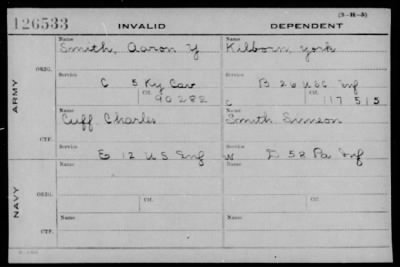 126533 INVALID DEPENDENT (3-H-3)
Name Name
Smith, Aaron Y Kilborn, York
ORIG. Service Service
C 5 Ky Cav B 26 U S C Inf
Ctf. Ctf.
90282 C 117515
ARMY
Name Name
Cuff Charles Smith Simeon
CTF. Service Service
E 12 U S Inf W I 58 Pa Inf
Name Name
ORIG. Service Ctf. Service Ctf.
NAVY
Name Name
CTF.